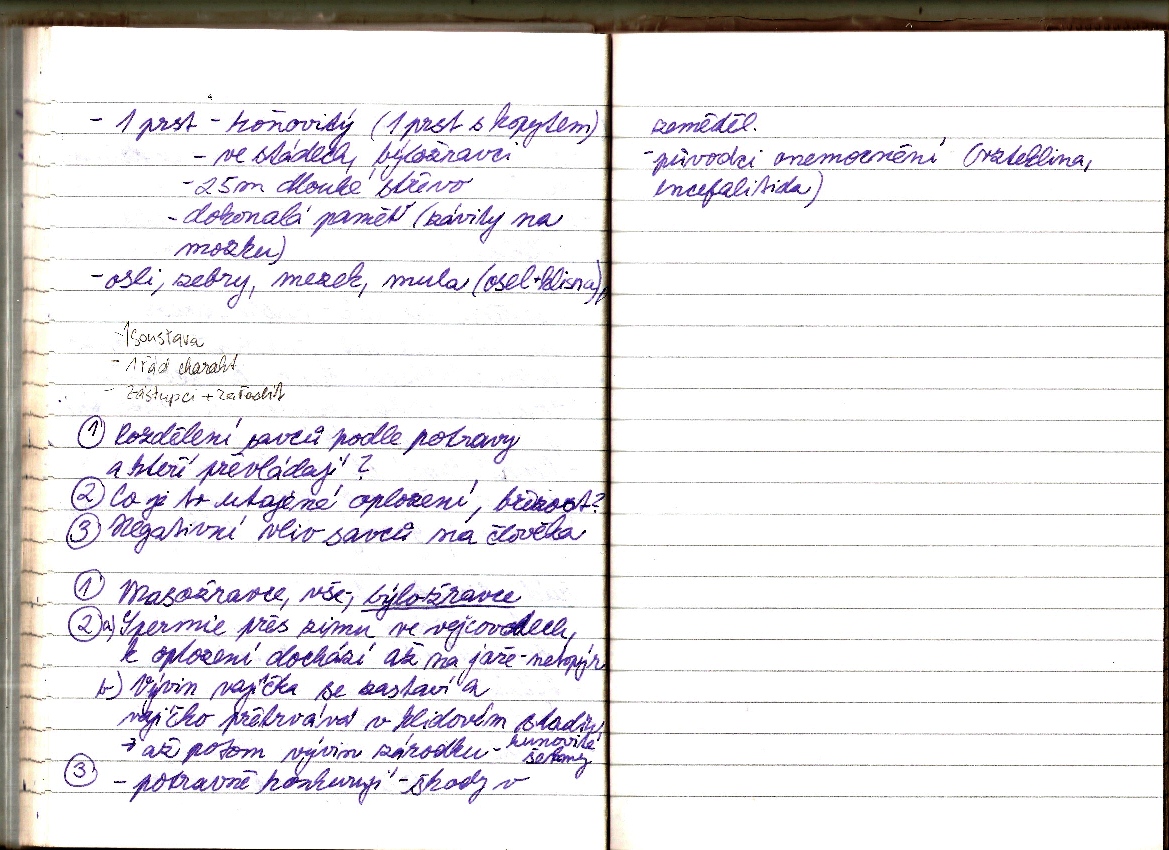 - 1 prst - koňovitý (1 prst s kopytem)
- ve stádech, býložravci
- 25m dlouhé střevo
- dokonalá paměť (závity na
mozku)
- osli, zebry, mezek, mula (osel+klisna),
- 1 soustava
- 1 řád charakt
- zástupci + zařadit
① Rozdělení savců podle potravy
a kteří převládají?
② Co je to utajené oplození, březost?
③ Negativní vliv savců na člověka
① Masožravce, vše-, býložravce
② a) Spermie přes zimu ve vejcovodech,
k oplození dochází až na jaře - netopýr
b) Vývin vajíčka se zastaví a
vajíčko přetrvává v klidovém stadiu,
→ až potom vývin zárodku - kunovité
šelmy
③ - potravně konkurují - škody v
zeměděl.
- původci onemocnění (vzteklina,
encefalitida)